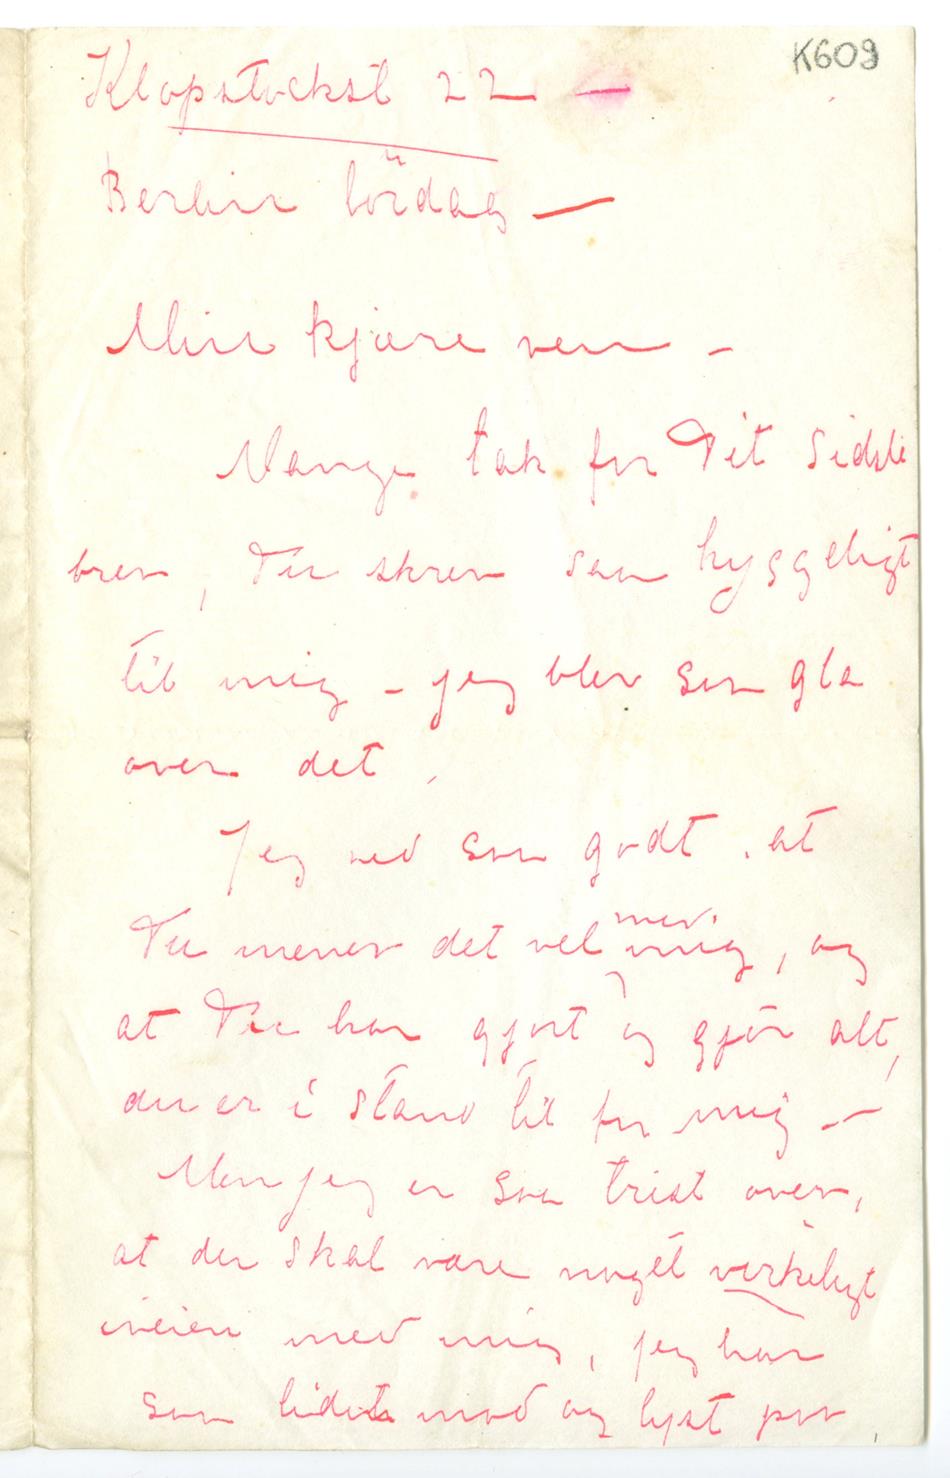 K609
Klopstockst 22 —
Berlin lördag —
Min kjære ven –
Mange tak for Dit sidste
brev, Du skrev saa hyggeligt
til mig – jeg blev saa gla
over det.
Jeg ved saa godt. at
Du mener det vel med mig, og
at Du har gjort og gjør alt,
du er i stand til for mig –
Men jeg er saa trist over,
at der skal være noget virkeligt
iveien med mig, jeg har
saa lidet mod og lyst paa